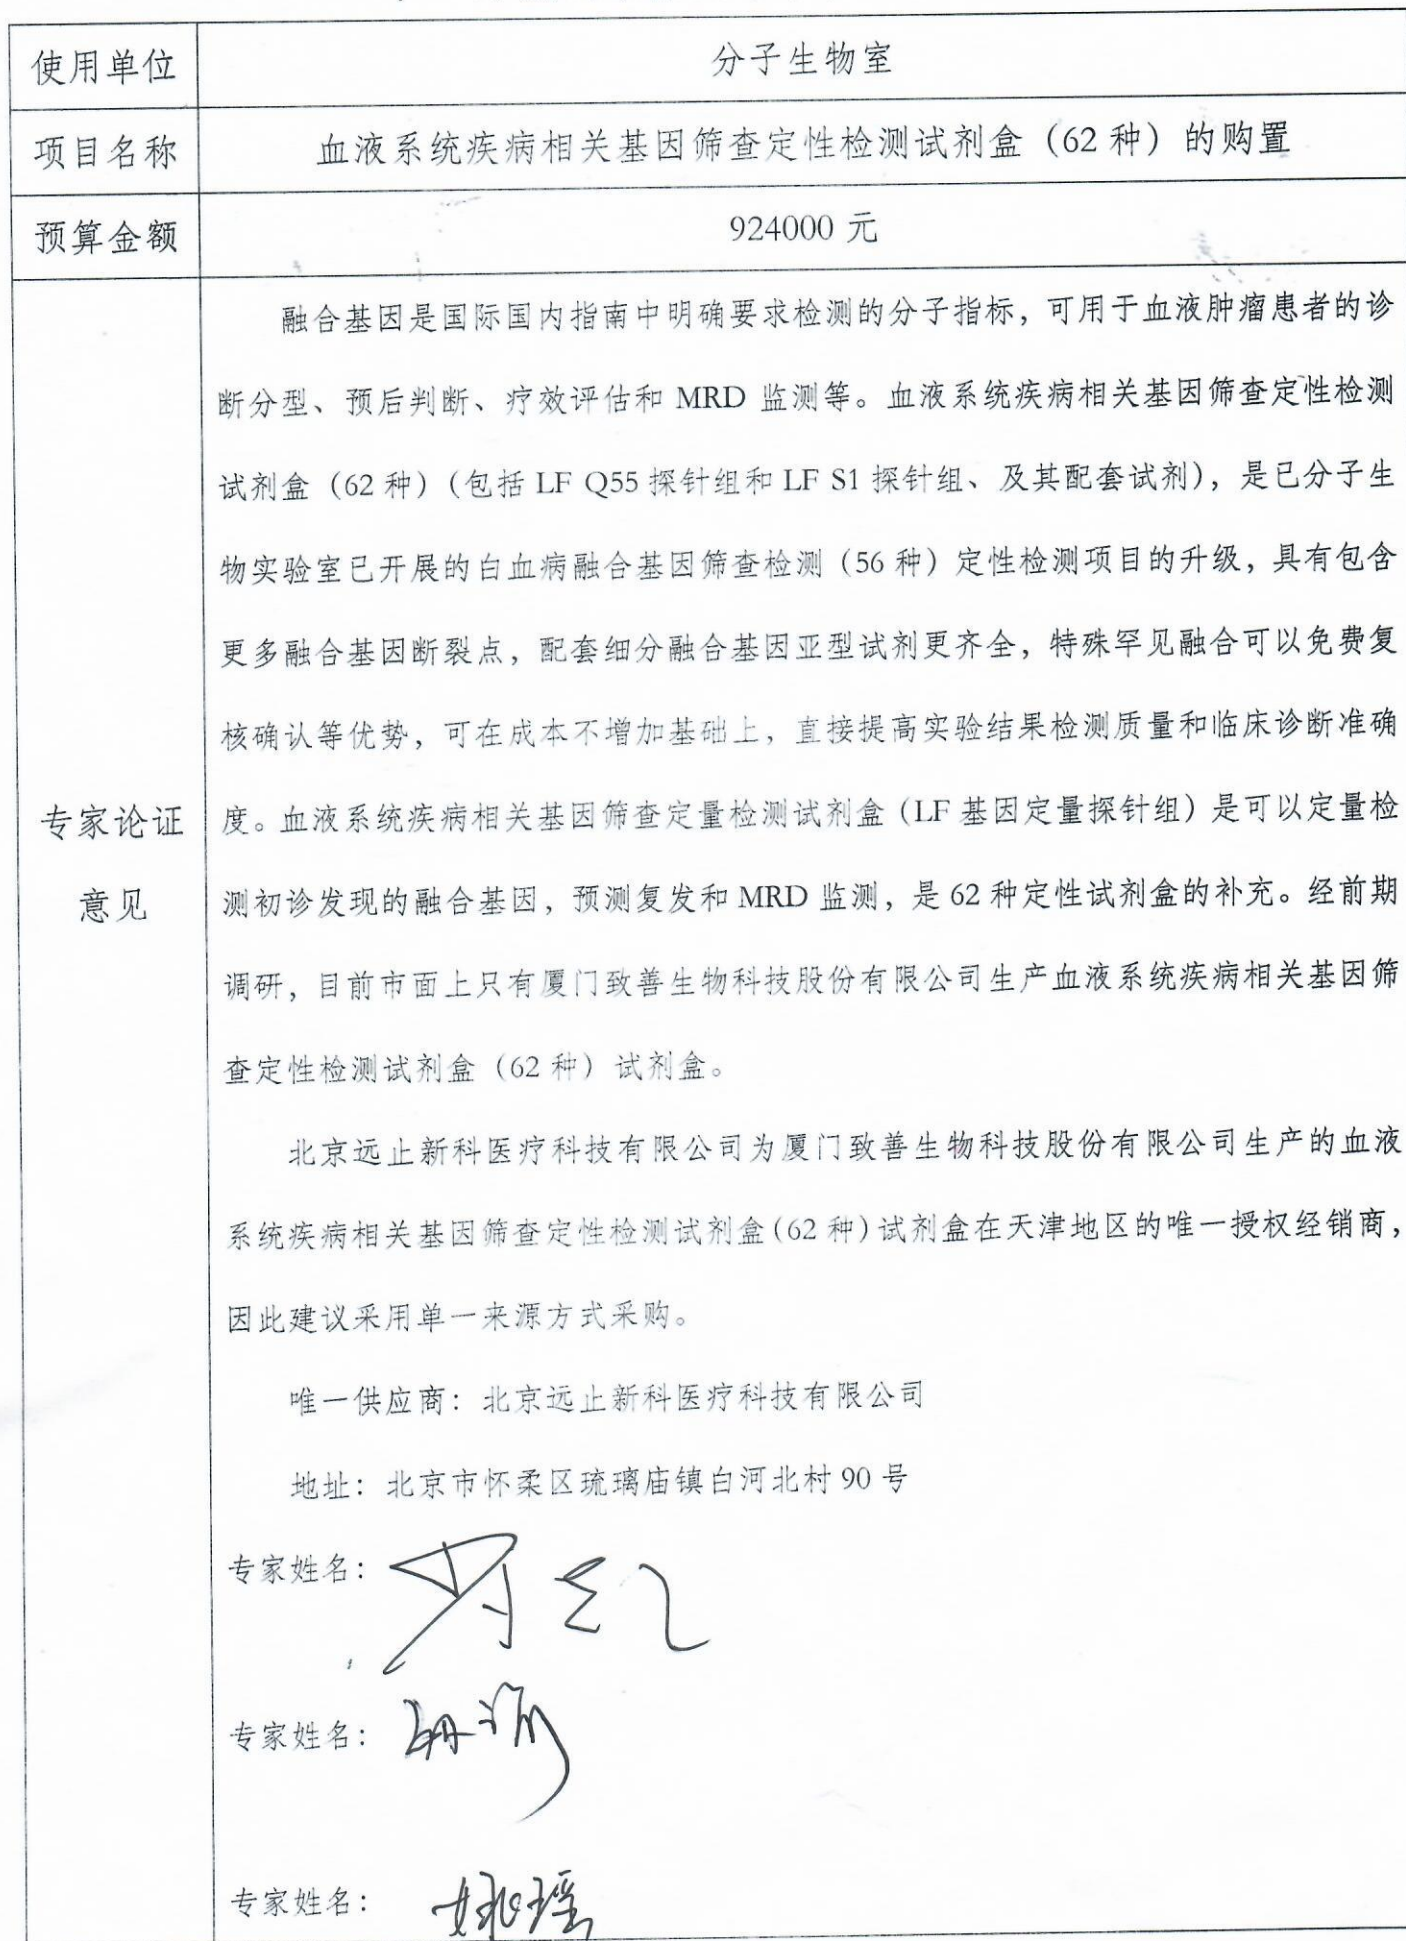 使用单位
分子生物室
项目名称
血液系统疾病相关基因筛查定性检测试剂盒（62 种）的购置
预算金额
924000 元
专家论证
意见
融合基因是国际国内指南中明确要求检测的分子指标，可用于血液肿瘤患者的诊
断分型、预后判断、疗效评估和 MRD 监测等。血液系统疾病相关基因筛查定性检测
试剂盒（62 种）（包括 LF Q55 探针组和 LF S1 探针组、及其配套试剂），是已分子生
物实验室已开展的白血病融合基因筛查检测（56 种）定性检测项目的升级，具有包含
更多融合基因断裂点，配套细分融合基因亚型试剂更齐全，特殊罕见融合可以免费复
核确认等优势，可在成本不增加基础上，直接提高实验结果检测质量和临床诊断准确
度。血液系统疾病相关基因筛查定量检测试剂盒（LF 基因定量探针组）是可以定量检
测初诊发现的融合基因，预测复发和 MRD 监测，是 62 种定性试剂盒的补充。经前期
调研，目前市面上只有厦门致善生物科技股份有限公司生产血液系统疾病相关基因筛
查定性检测试剂盒（62 种）试剂盒。
北京远止新科医疗科技有限公司为厦门致善生物科技股份有限公司生产的血液
系统疾病相关基因筛查定性检测试剂盒（62 种）试剂盒在天津地区的唯一授权经销商，
因此建议采用单一来源方式采购。
唯一供应商：北京远止新科医疗科技有限公司
地址：北京市怀柔区琉璃庙镇白河北村 90 号
专家姓名：
专家姓名：
专家姓名：姚瑶